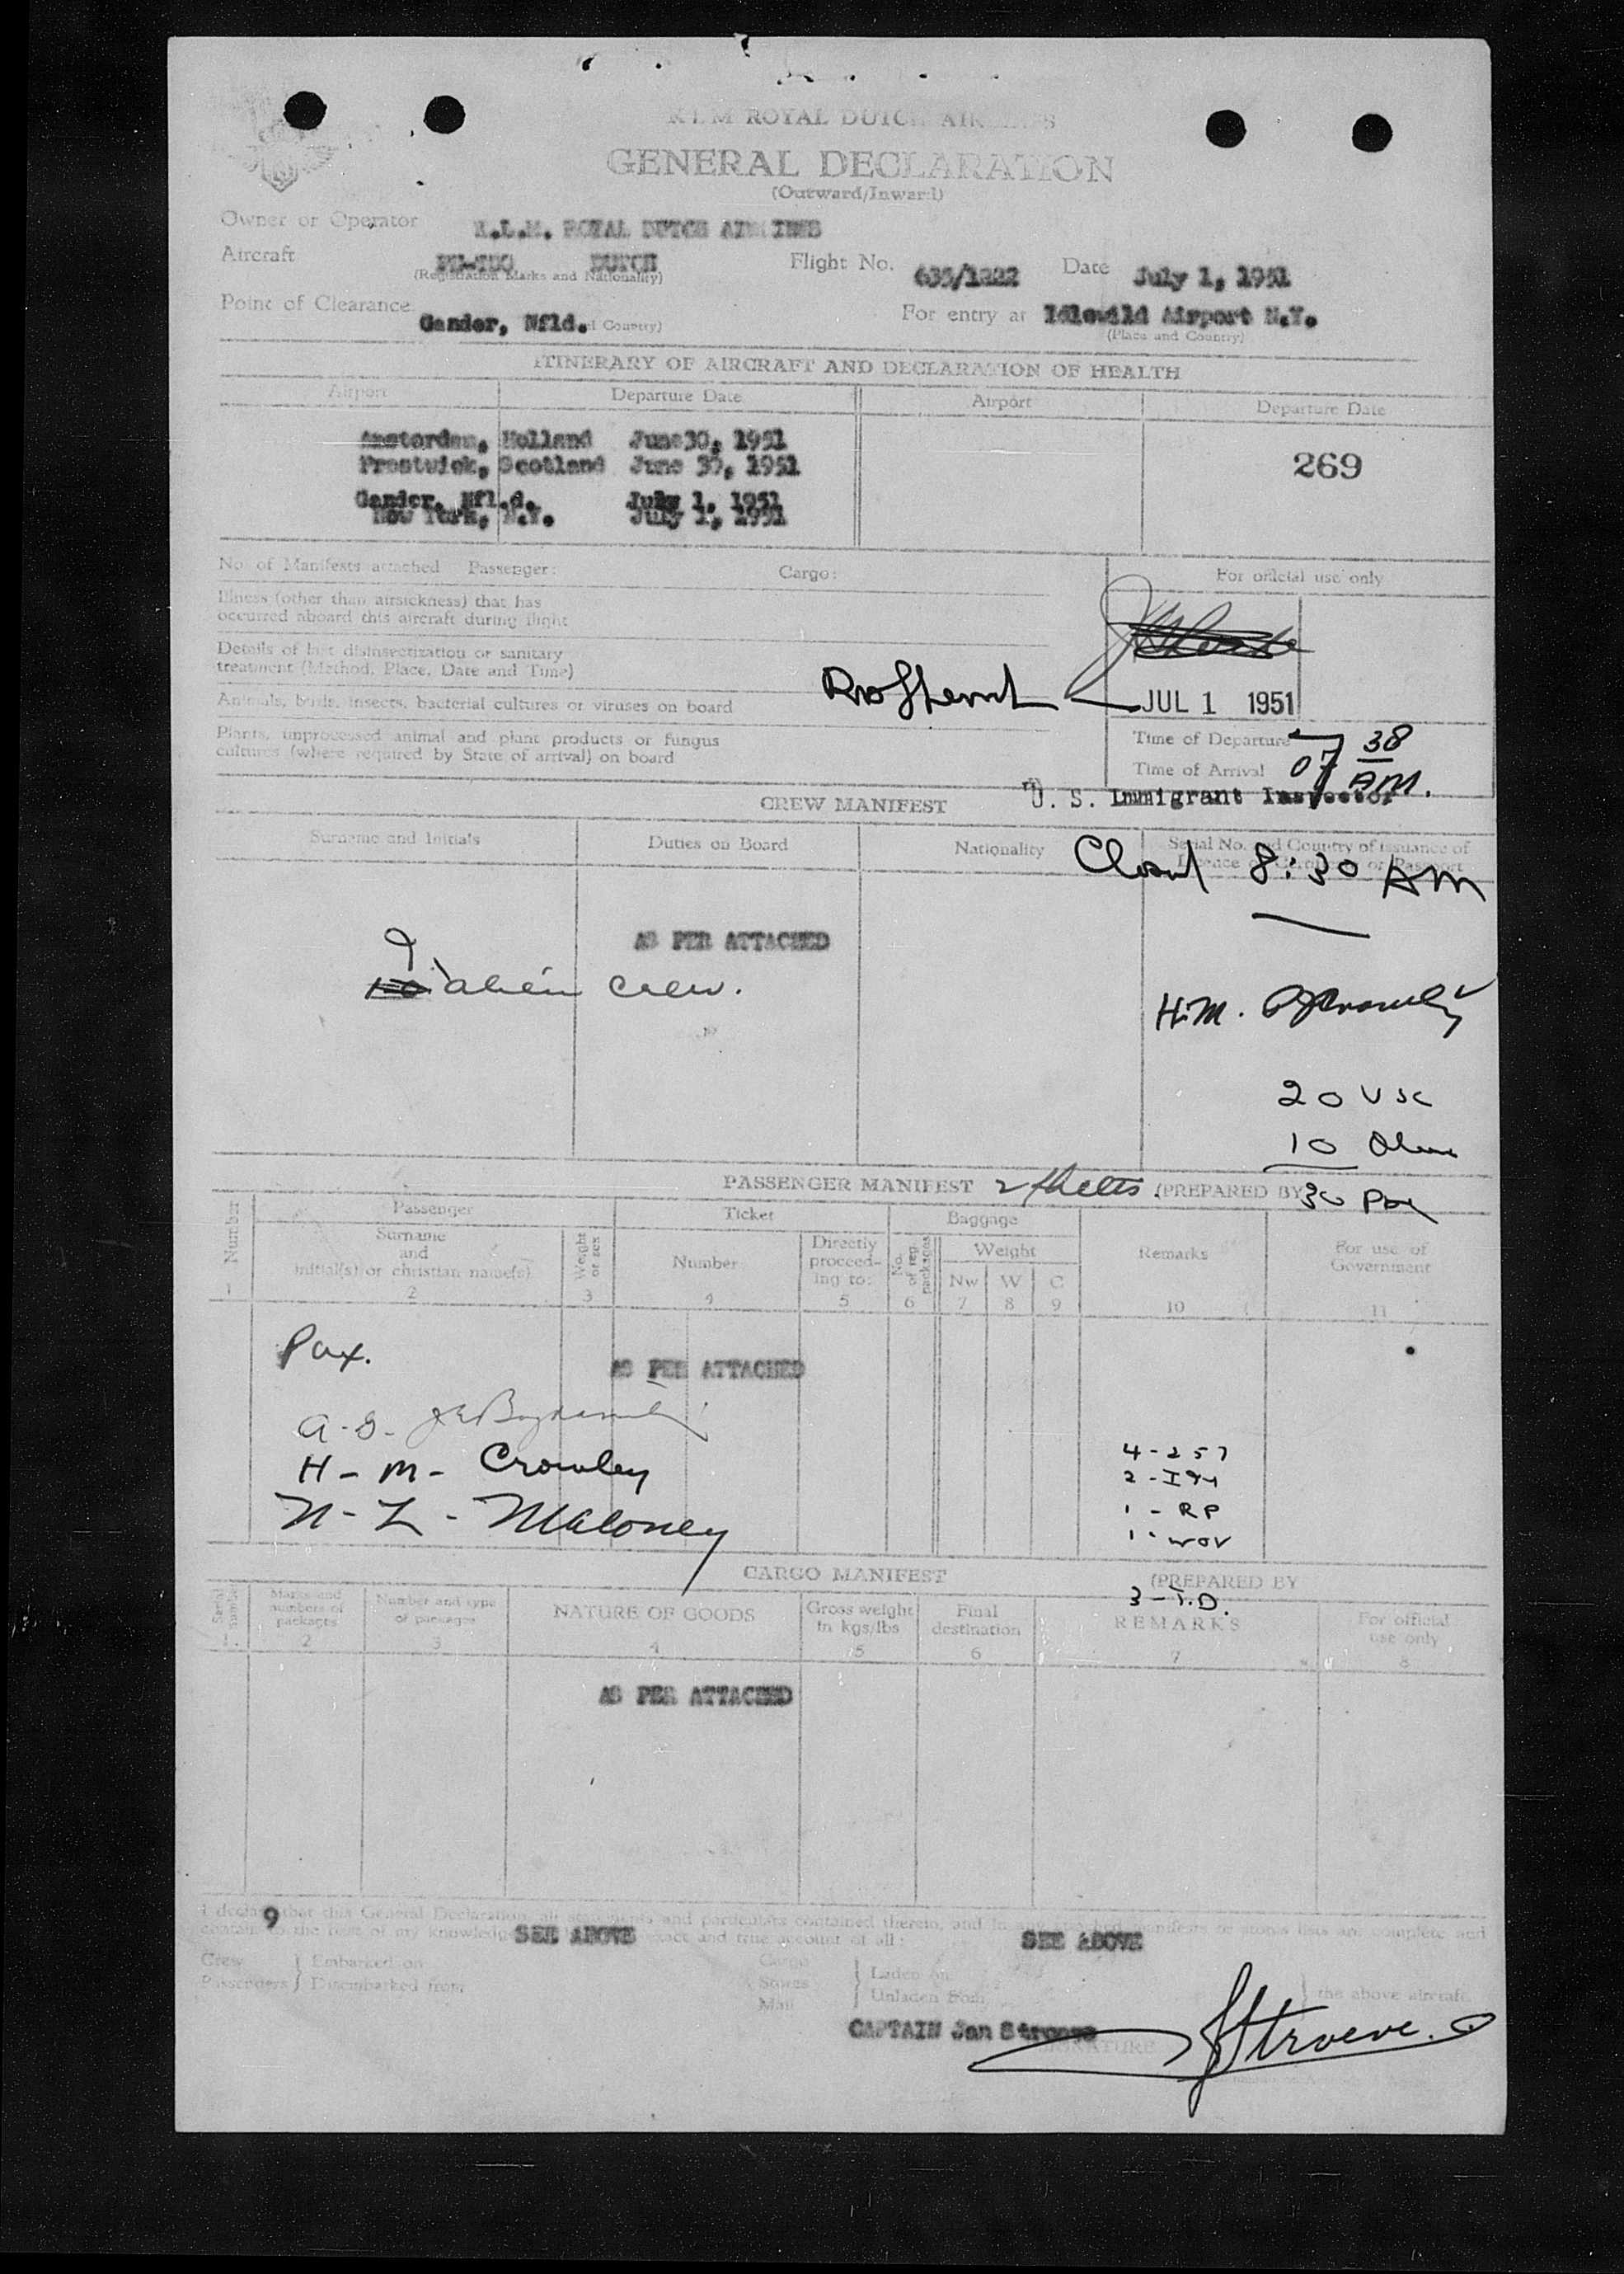 KLM ROYAL DUTCH AIRLINES
GENERAL DECLARATION
(Outward/Inward)
Owner or Operator K.L.M. ROYAL DUTCH AIRLINES
Aircraft DUTCH Flight No. 635/1222 Date July 1, 1951
(Registration Marks and Nationality)
Point of Clearance Gander, Nfld. For entry at Idlewild Airport N.Y.
(Place and Country)
ITINERARY OF AIRCRAFT AND DECLARATION OF HEALTH
Airport Departure Date Airport Departure Date
Amsterdam, Holland June30, 1951
Prestwick, Scotland June 30, 1951
269
Gander, Nfl.d. July 1, 1951
New York, N.Y. July 1, 1951
No. of Manifests attached Passenger: Cargo: For official use only
Illness (other than airsickness) that has
occurred aboard this aircraft during flight
Details of last disinsectization or sanitary
treatment (Method, Place, Date and Time)
Animals, birds, insects, bacterial cultures or viruses on board
JUL 1 1951
Plants, unprocessed animal and plant products or fungus
cultures (where required by State of arrival) on board
Time of Departure
Time of Arrival 07 38 AM.
U. S. Immigrant Inspector
CREW MANIFEST
Surname and Initials Duties on Board Nationality Serial No. and Country of issuance of
Licence or Certificate or Passport
Closed 8:30 AM
AS PER ATTACHED
9
10 alien crew.
H.M. Crowley
20 USC
10 Aliens
30 Pax
PASSENGER MANIFEST 2 sheets (PREPARED BY
Number Passenger Ticket Baggage Remarks For use of Government
Surname and initial(s) or christian name(s) Weight or sex Number Directly proceeding to: No. of reg. packages Weight
Nw W C
1 2 3 4 5 6 7 8 9 10 11
Pax.
AS PER ATTACHED
H - M - Crowley
N - L - Maloney
4 - 257
2 - I94
1 - RP
1 - WOV
3 - T.D.
CARGO MANIFEST (PREPARED BY
Serial number Marks and numbers of packages Number and type of packages NATURE OF GOODS Gross weight in kgs/lbs Final destination REMARKS For official use only
1 2 3 4 5 6 7 8
AS PER ATTACHED
I declare that this General Declaration, all statements and particulars contained therein, and in any manifests lists are complete and
contain to the best of my knowledge exact and true account of all:
9 SEE ABOVE SEE ABOVE
Crew Passengers } Embarked on Disembarked from
Cargo Stores Mail } Laden on Unladen from } the above aircraft.
CAPTAIN Jan Stroeve
SIGNATURE
JStroeve.